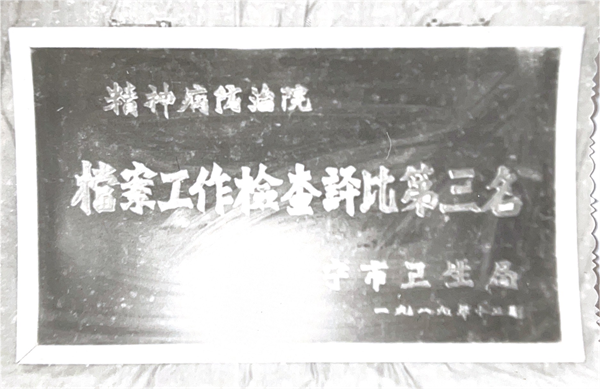 精神病防治院
档案工作检查评比第三名
宁市卫生局
一九八六年十二月